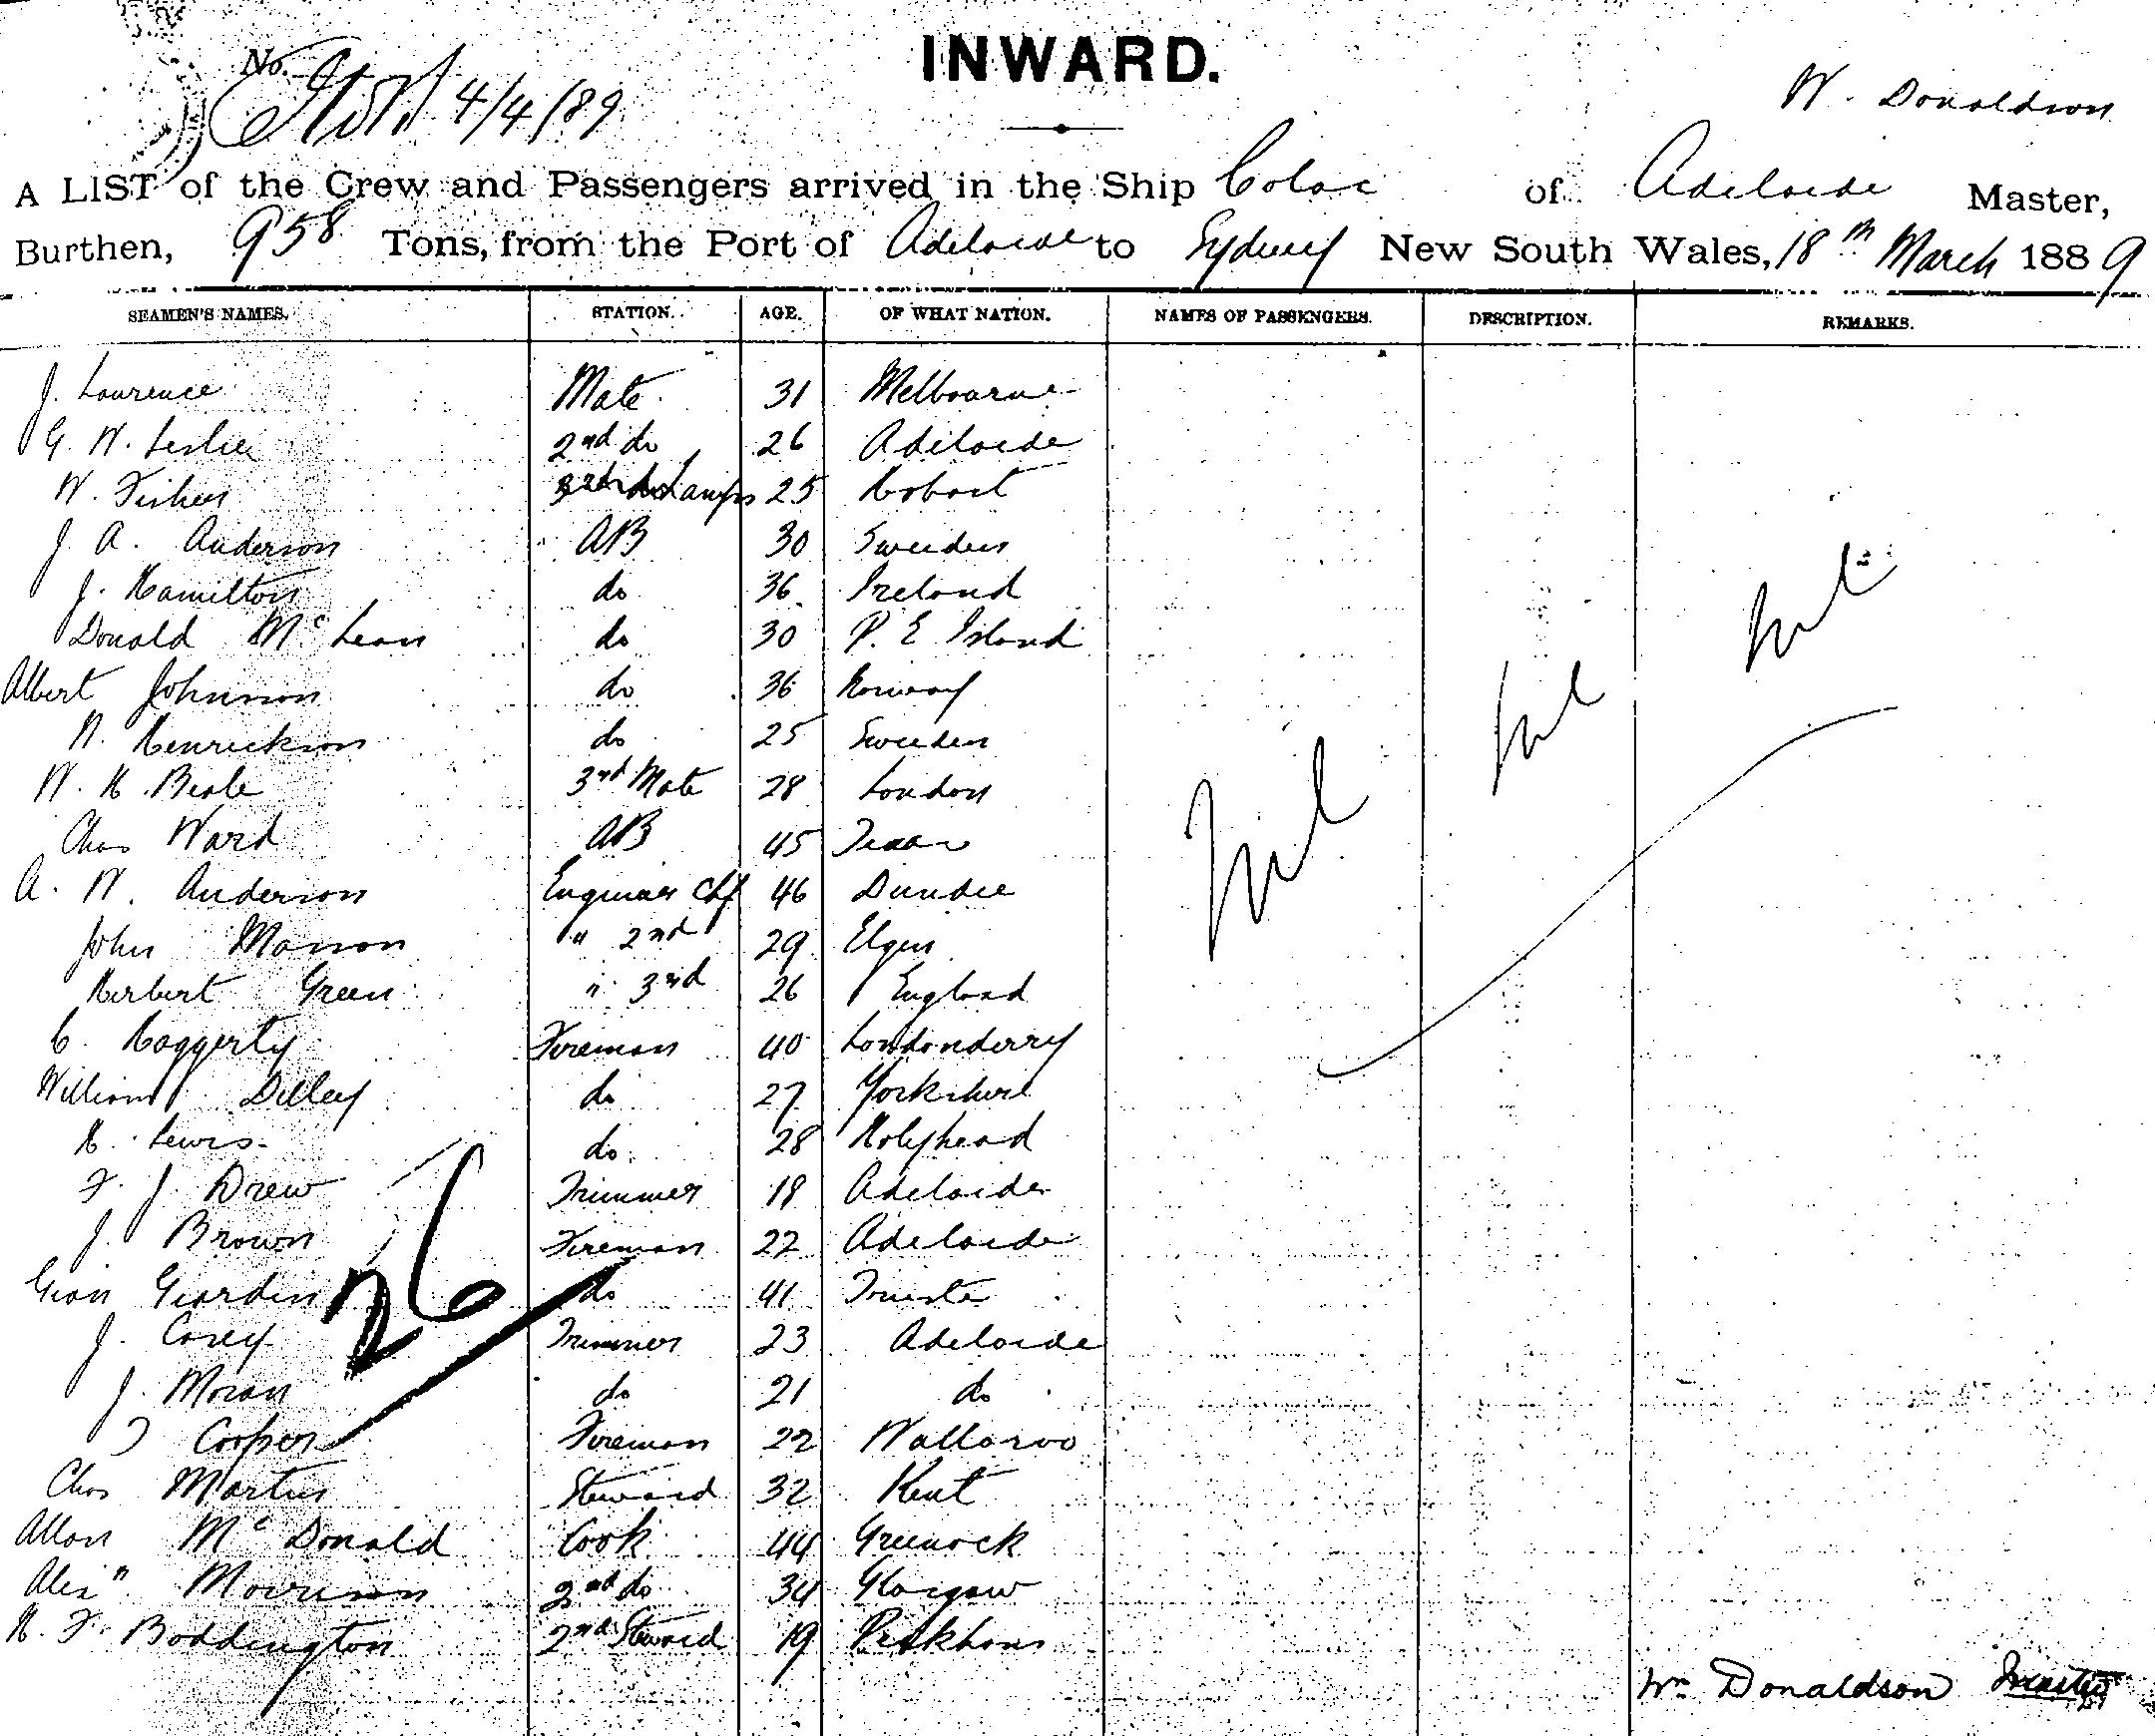 INWARD.
No. 4/4/89
W. Donaldson
A LIST of the Crew and Passengers arrived in the Ship Colac of Adelaide Master,
Burthen, 958 Tons, from the Port of Adelaide to Sydney New South Wales, 18th March 1889
SEAMEN'S NAMES. STATION. AGE. OF WHAT NATION. NAMES OF PASSENGERS. DESCRIPTION. REMARKS.
J. Lawrence Mate 31 Melbourne
G. W. Leslie 2nd do 26 Adelaide
W. Fisher Lamps 25 Hobart
J. A. Anderson AB 30 Sweden
J. Hamilton do 36 Ireland
Donald McLean do 30 P. E Island
Albert Johnson do 36 Norway
N. Henrickson do 25 Sweden
W. H. Beale 3rd Mate 28 London
Chas Ward AB 45 Texas
A. W. Anderson Engineer Chf 46 Dundee
John Manson " 2nd 29 Elgin
Herbert Green " 3rd 26 England
C. Haggerty Fireman 40 Londonderry
William Dilley do 27 Yorkshire
H. Lewis do 28 Holyhead
F. J. Drew Trimmer 18 Adelaide
J. Brown Fireman 22 Adelaide
Gian Giardin do 41 Trieste
J. Corey Trimmer 23 Adelaide
J. Moran do 21 do
J Cooper Fireman 22 Wallaroo
Chas Martin Steward 32 Kent
Allan McDonald Cook 44 Greenock
Alex" Morrison 2nd do 34 Glasgow
H. F. Boddington 2nd Steward 19 Peckham
Nil Nil Nil
26
Wm Donaldson Master